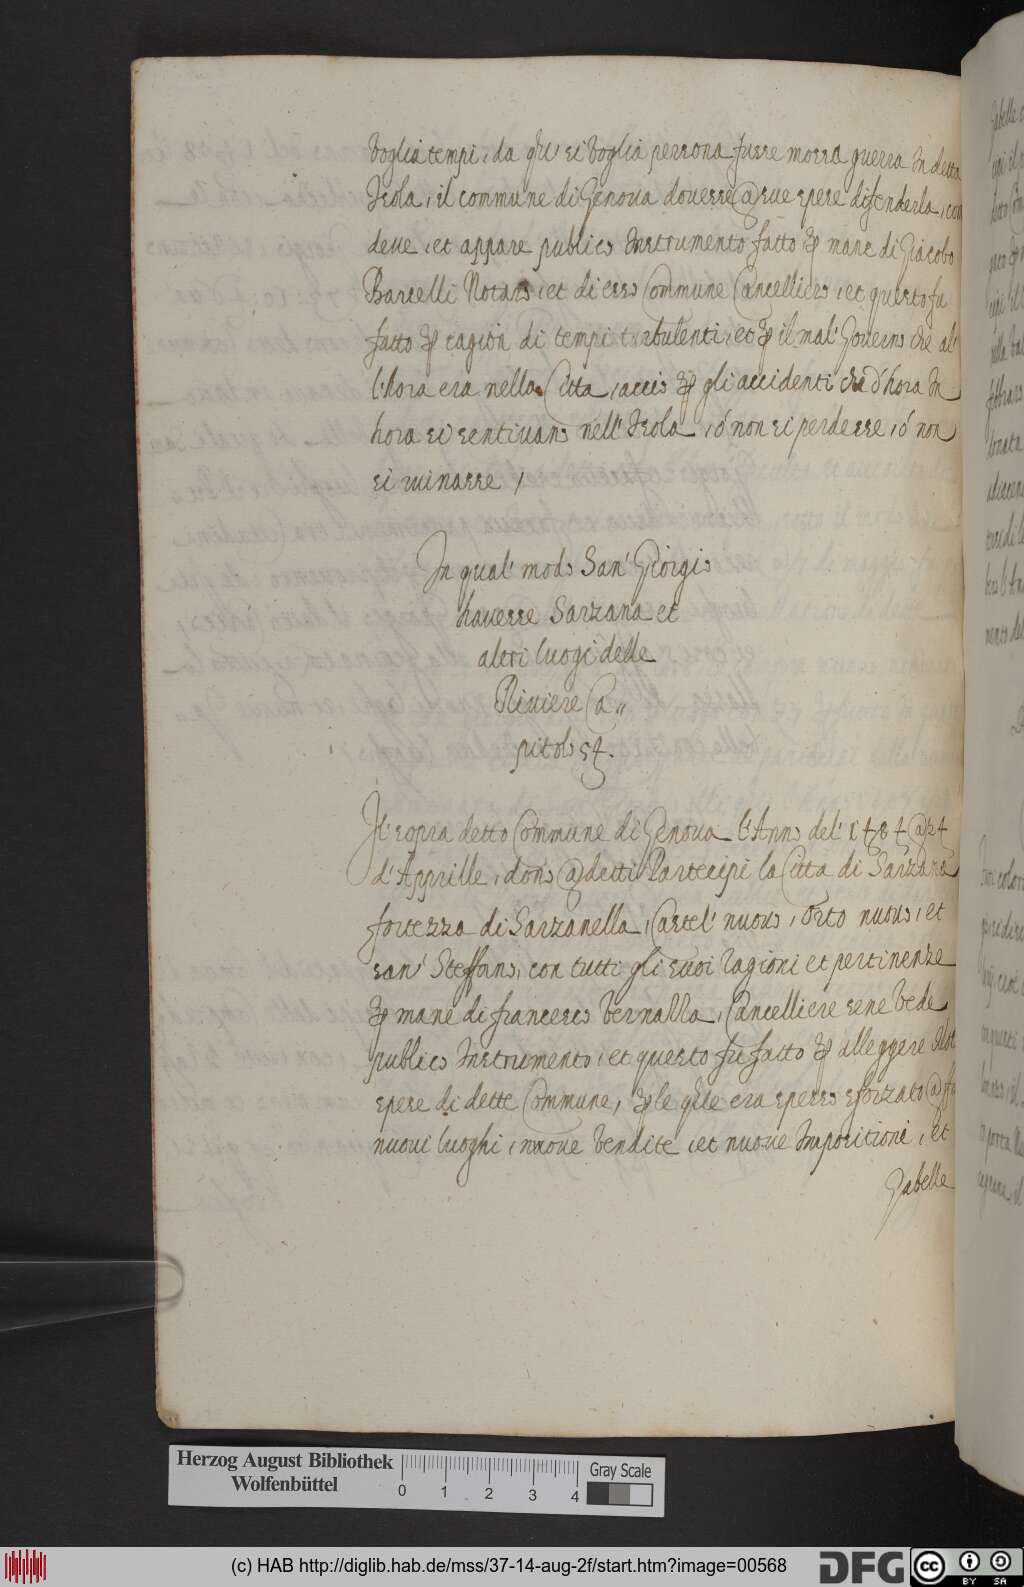 voglia tempi, da qu' si voglia persona fusse mossa guerra in detta
Isola, il commune di Genova dovesse @ sue spese difenderla, com
deve, et appare publico Instrumento fatto ꝑ mane di Giacobo
Barcelli Notaro, et di esso Commune Cancelliero, et questo fu
fatto ꝑ cagion di tempi turbulenti, et ꝑ il mal' Governo che al'
l'hora era nella Citta, accio ꝑ gli accidenti che d'hora in
hora si sentivano nell' Isola, ó non si perdesse, ó non
si ruinasse /
In qual' modo San' Giorgio
havesse Sarzana et
altri luogi delle
Riviere Ca„
pitolo 54.
Il' sopra detto Commune di Genova l'Anno del' 1484 @ 24
d'Apprille, dono @ detti Partecipi la Citta di Sarzana
fortezza di Sarzanella, Castel' nuovo, Orto nuovo, et
san' Steffano, con tutti gli suoi ragioni et pertinenze
ꝑ mane di francesco bernalla, Cancelliere sene vede
publico Instrumento, et questo fu fatto ꝑ alleggere
spese di dette Commune, ꝑ le qule era spesso sforzato @
nuovi luoghi, nuove vendite, et nuove Impositioni, et
Gabelle
Herzog August Bibliothek
Wolfenbüttel
0 1 2 3 4
Gray Scale
(c) HAB http://diglib.hab.de/mss/37-14-aug-2f/start.htm?image=00568
DFG
cc
BY SA